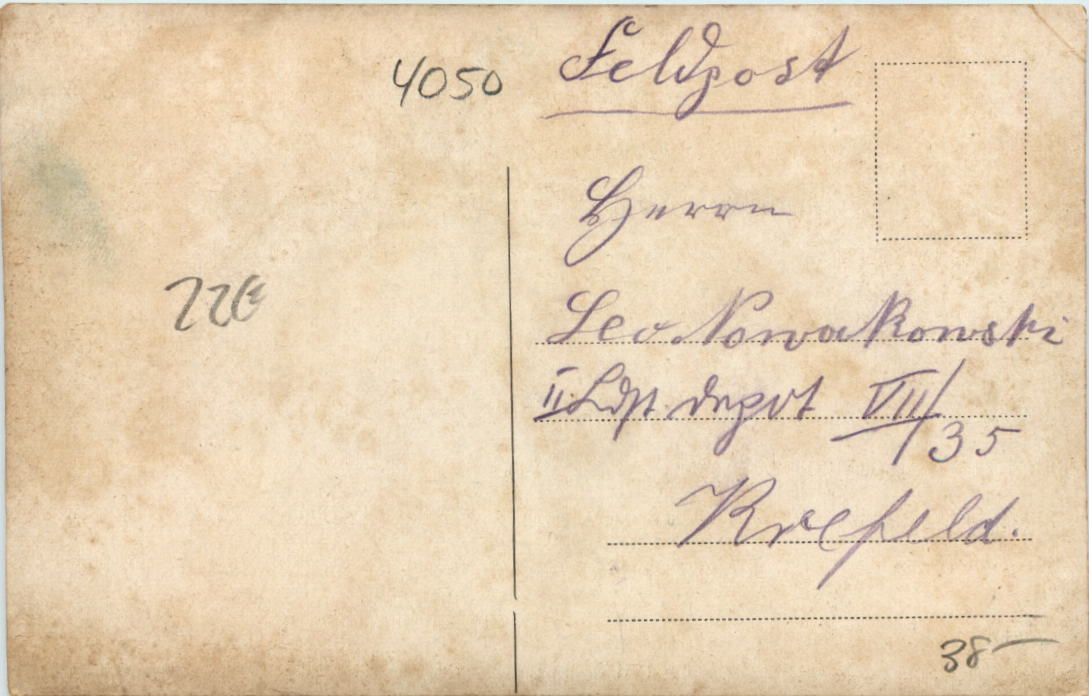 4050
Feldpost
Herrn
Leo Nowakowski
II. Ldst depot VII/35
Krefeld.
38 —